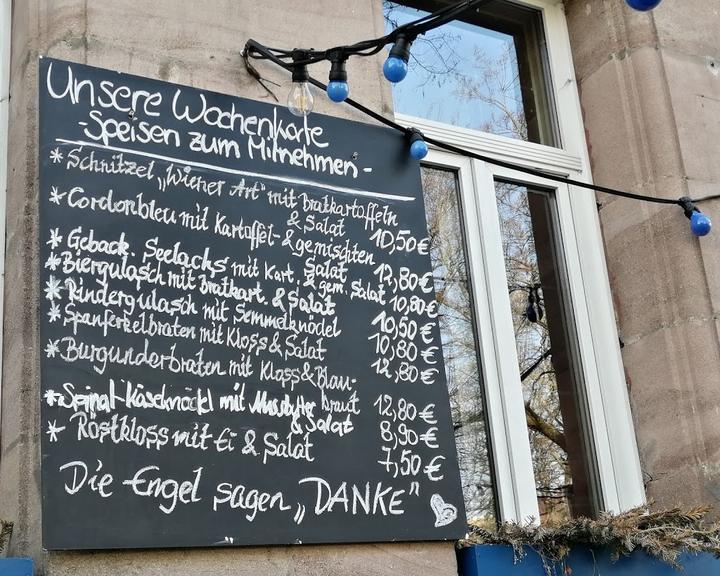 Unsere Wochenkarte
-Speisen zum Mitnehmen-
* Schnitzel „Wiener Art" mit Bratkartoffeln
& Salat 10,50€
* Cordonbleu mit Kartoffel- & gemischten
Salat 12,80€
* Geback. Seelachs mit Kart. & gem. Salat 10,80€
* Biergulasch mit Bratkart. & Salat 10,50€
* Rindergulasch mit Semmelknödel 10,80€
* Spanferkelbraten mit Kloss & Salat 12,80€
* Burgunderbraten mit Kloss & Blau-
kraut 12,80€
* Spinat-Käseknöckl mit & Salat 8,90€
* Röstkloss mit Ei & Salat 7,50€
Die Engel sagen „DANKE"